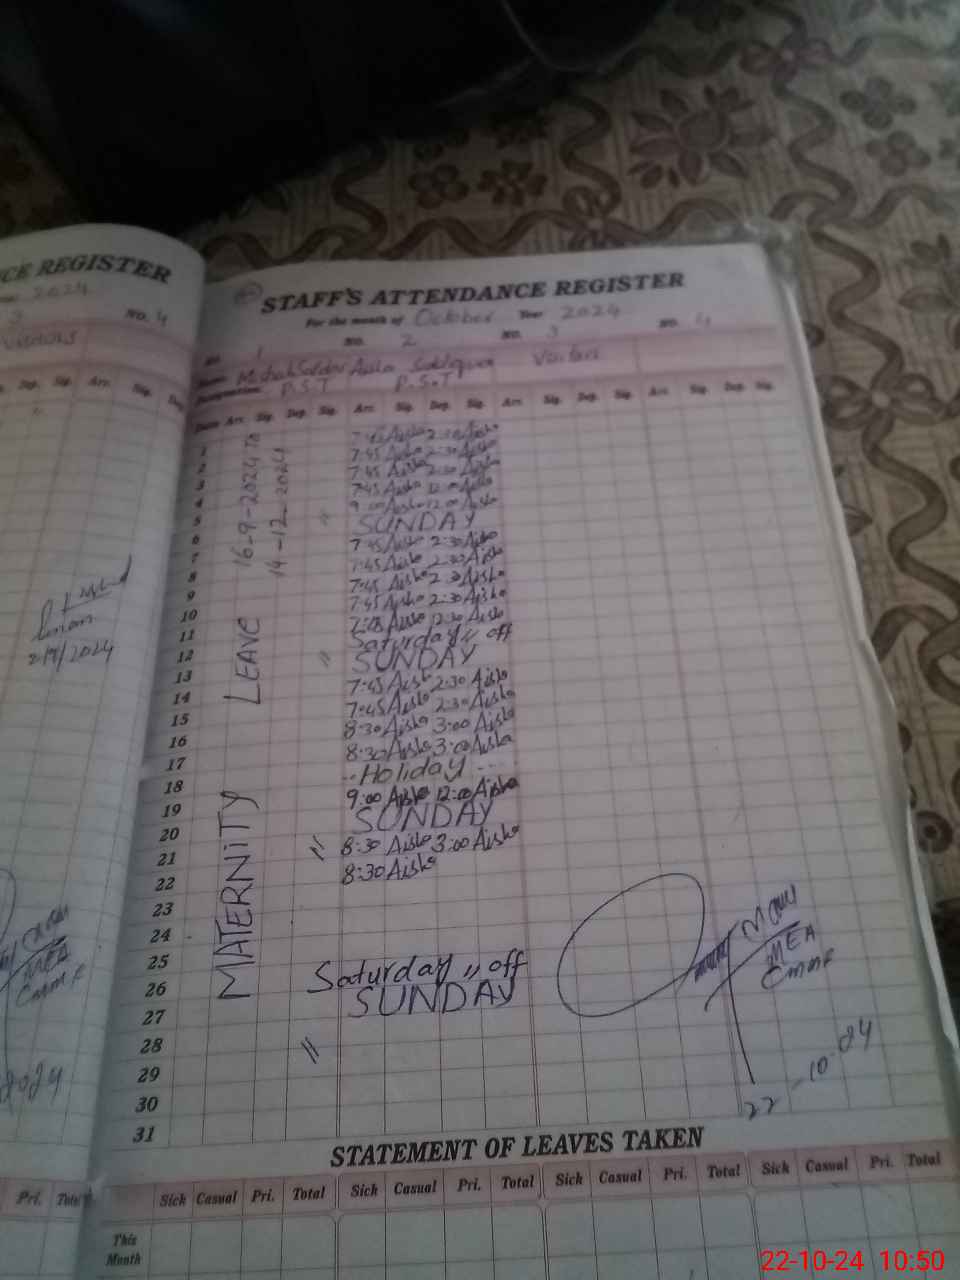 CE REGISTER
2024
3
NO. 4
Visitors
Dep. Sig. Arr. Sig. Dep.
STAFF'S ATTENDANCE REGISTER
For the month of October Year 2024
NO. 1 NO. 2 NO. 3 NO. 4
Name Aisha Visitors
Designation P.S.T P.S.T
Date Arr. Sig. Dep. Sig. Arr. Sig. Dep. Sig. Arr. Sig. Dep. Sig. Arr. Sig. Dep. Sig.
MATERNITY LEAVE 16-9-2024 To
14-12-2024
1 7:45 Aisha 2:30 Aisha
2 7:45 Aisha 2:30 Aisha
3 7:45 Aisha 2:30 Aisha
4 7:45 Aisha 12:00 Aisha
5 9:00 Aisha 12:00 Aisha
6 " SUNDAY
7 7:45 Aisha 2:30 Aisha
8 7:45 Aisha 2:30 Aisha
9 7:45 Aisha 2:30 Aisha
10 7:45 Aisha 2:30 Aisha
11 7:45 Aisha 12:30 Aisha
12 Saturday " off
13 " SUNDAY
14 7:45 Aisha 2:30 Aisha
15 7:45 Aisha 2:30 Aisha
16 8:30 Aisha 3:00 Aisha
17 8:30 Aisha 3:00 Aisha
18 Holiday
19 9:00 Aisha 12:00 Aisha
20 SUNDAY
21 " 8:30 Aisha 3:00 Aisha
22 8:30 Aisha
23
24
25
26 Saturday " off
27 SUNDAY
28
29 "
30
31
MEA
Cmmf
22-10-24
MEA
Cmmf
STATEMENT OF LEAVES TAKEN
Pri. Total Sick Casual Pri. Total Sick Casual Pri. Total Sick Casual Pri. Total Sick Casual Pri. Total
This
Month
22-10-24 10:50